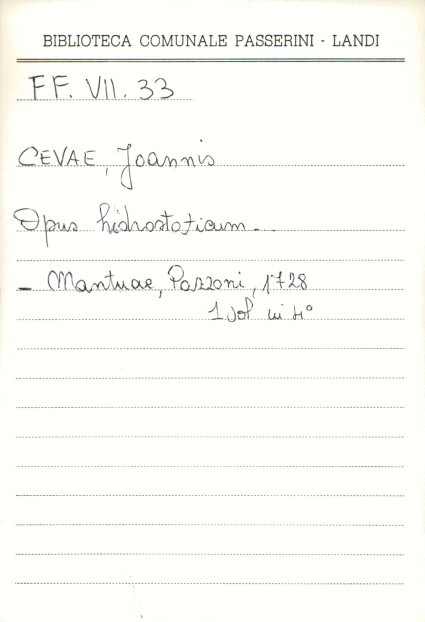 BIBLIOTECA COMUNALE PASSERINI - LANDI
FF. VII. 33
CEVAE, Joannis
Opus hidrostaticum...
- Mantuae, Pazzoni, 1728
1 vol in 4°